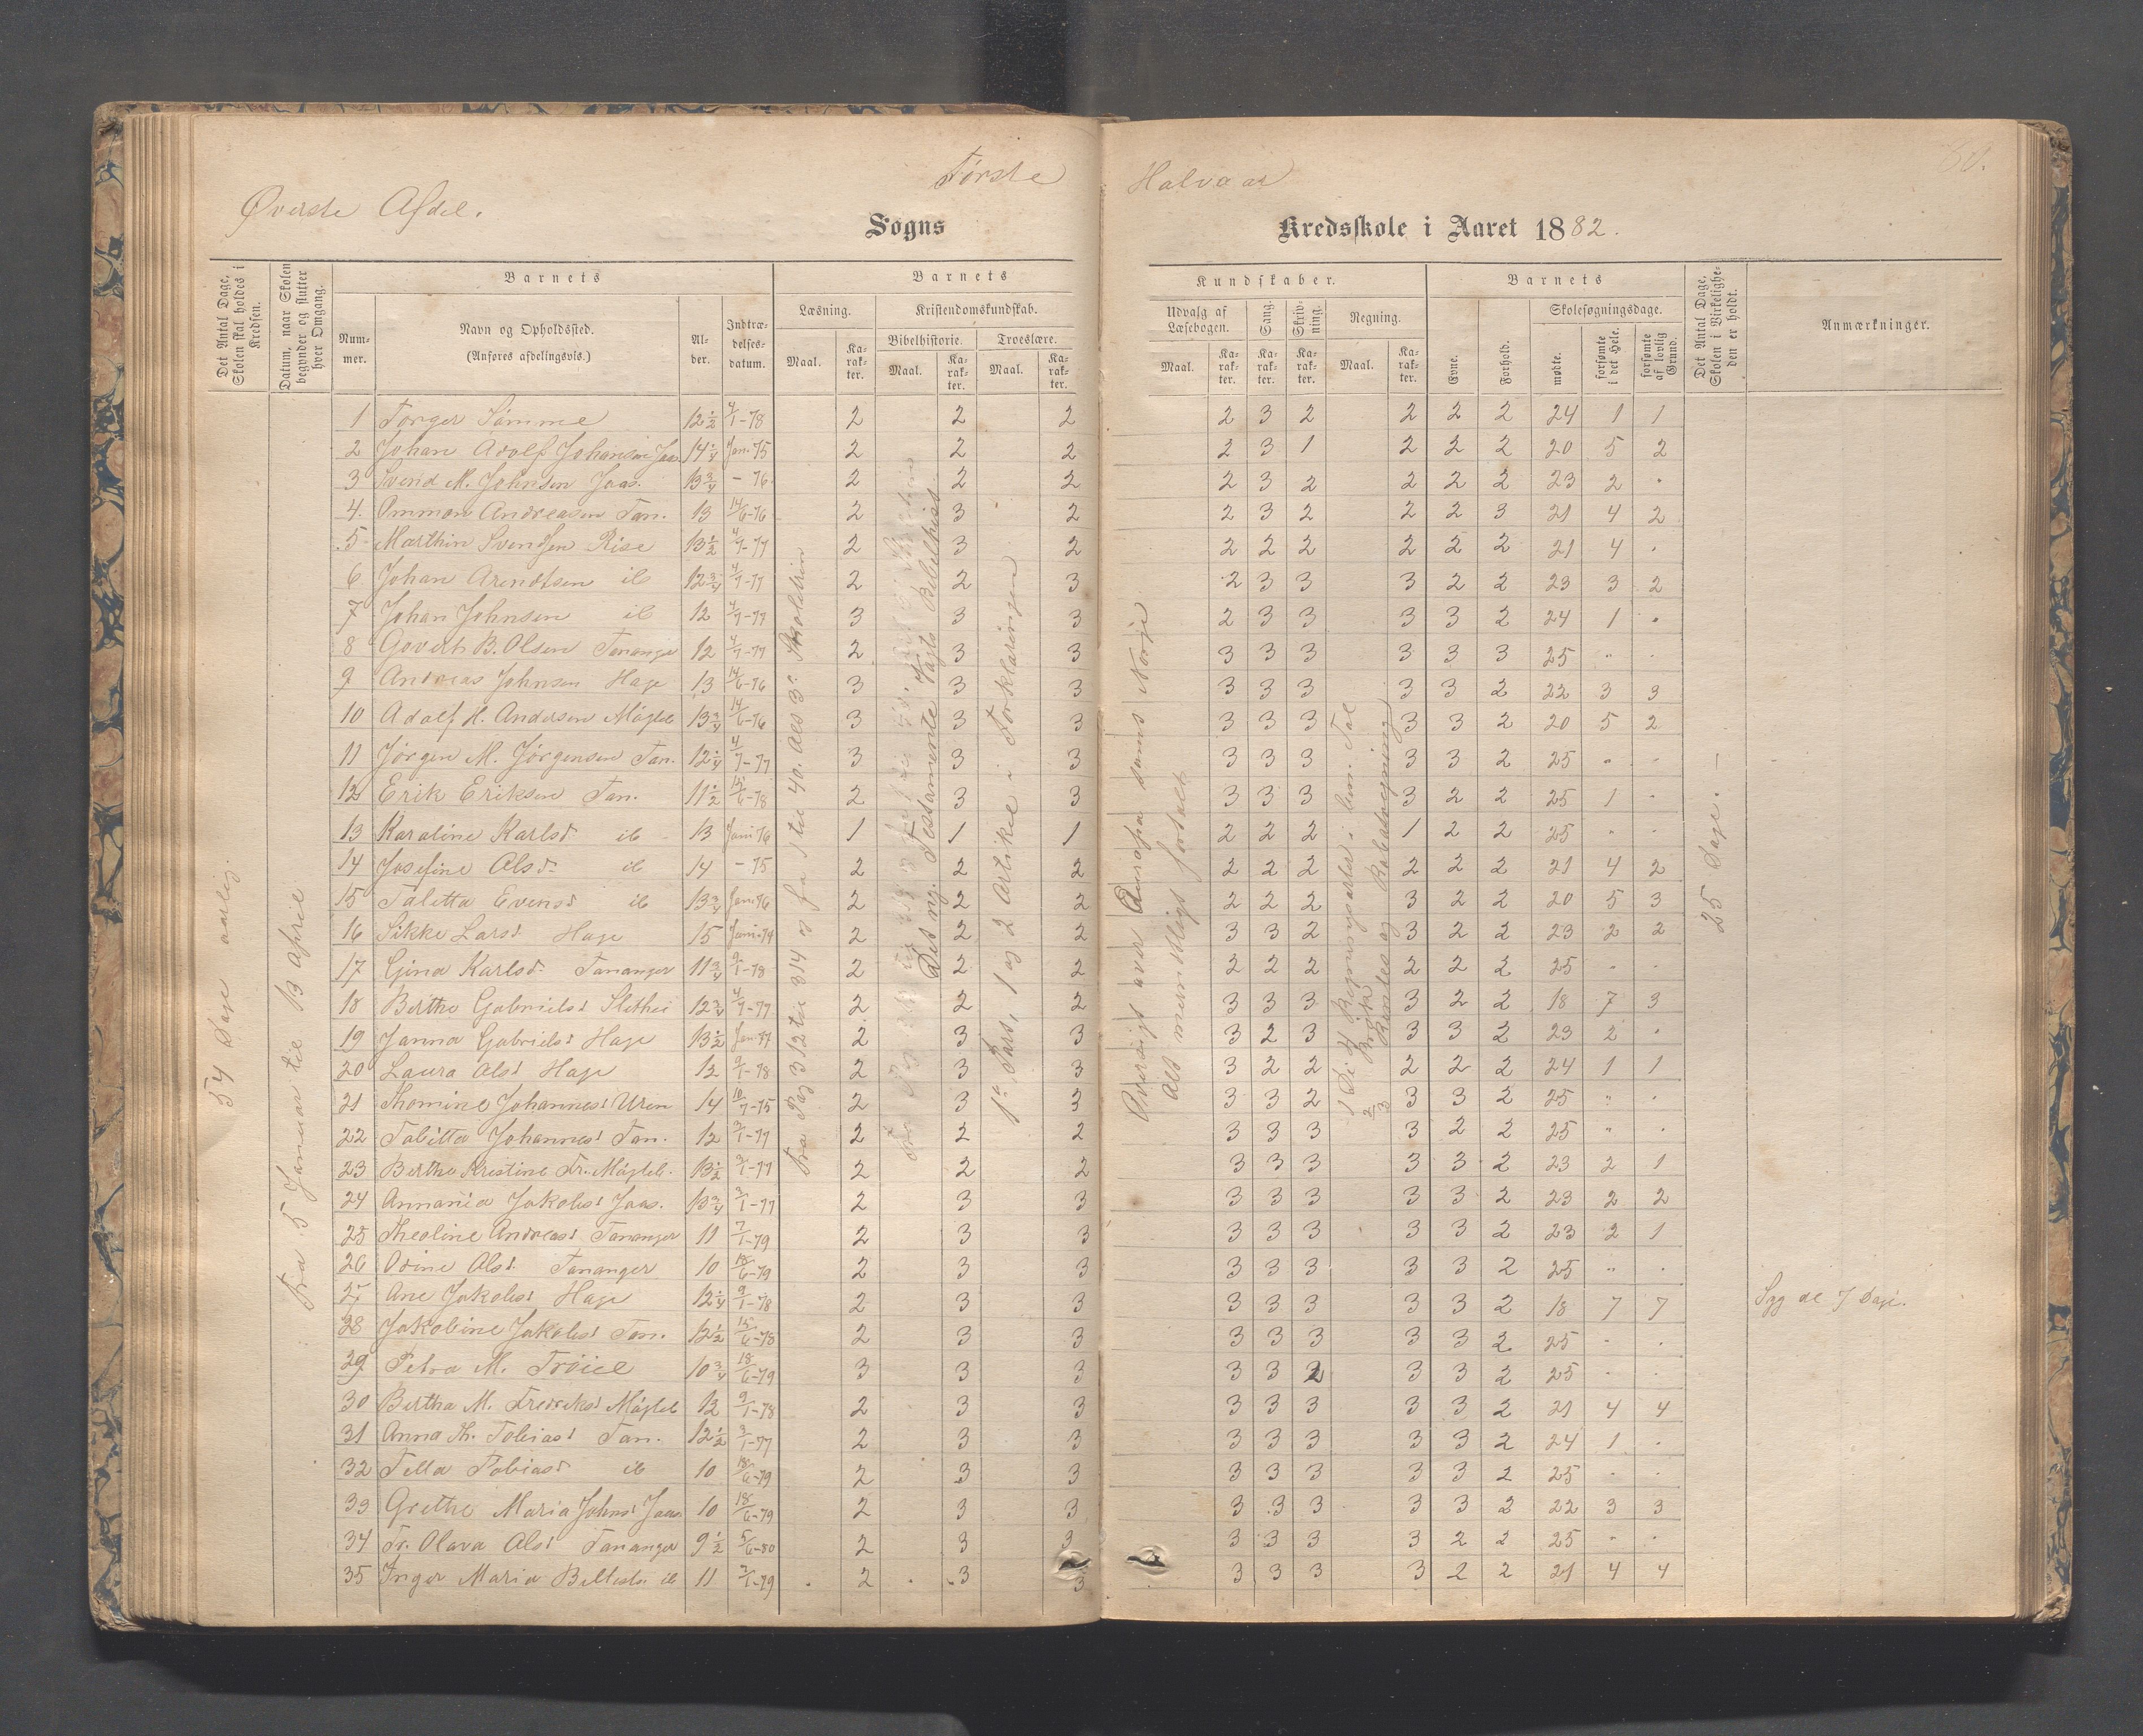 Øverste Afdel.
Første
Halvaar
Sogns
Kredsskole i Aaret 1882.
Det Antal Dage, Skolen skal holdes i Kredsen.
Datum, naar Skolen begynder og slutter hver Omgang.
Barnets
Nummer.
Navn og Opholdssted. (Anføres afdelingsvis.)
Alder.
Indtrædelsesdatum.
Barnets
Læsning.
Maal.
Karakter.
Kristendomskundskab.
Bibelhistorie.
Maal.
Karakter.
Troeslære.
Maal.
Karakter.
Kundskaber.
Udvalg af Læsebogen.
Maal.
Karakter.
Sang.
Karakter.
Skrivning.
Karakter.
Regning.
Maal.
Karakter.
Barnets
Evne.
Forhold.
Skolesøgningsdage.
mødte.
forsømte i det Hele.
forsømte af lovlig Grund.
Det Antal Dage, Skolen i Virkeligheden er holdt.
Anmærkninger.
54 Dage aarlig.
Fra 5 Januar til 13 April
Fra Pag 312 til 314 og fra 1 til 40. Als 3die Skoletrin
Det ny. Testamente Vogts Bibelhist.
1ste Part, 1 og 2 Artikel i Forklaringen
Oversigt over Europa samt Norge
Alt mundtligt fortalt
1 De 4 Regningsarter i ben. Tal
2 Brøk
3 Rentes og Rabatregning
25 Dage. —
1 Torger Sømme 12½ 4/1-78 2 2 2 2 3 2 2 2 2 24 1 1
2 Johan Adolf Johansen Jaas. 14¼ Jan.-75 2 2 2 2 3 1 2 2 2 20 5 2
3 Svend M. Johnsen Jaas. 13¾ - 76 2 2 2 2 3 2 2 2 2 23 2 .
4. Ommon Andreasen Tan. 13 14/6-76 2 3 2 2 3 2 2 2 3 21 4 2
5 Marthin Svendsen Rise 13½ 4/7-77 2 3 2 2 2 2 2 2 2 21 4 .
6 Johan Arendtsen ib 12¾ 4/7-77 2 2 3 2 3 3 3 2 2 23 3 2
7 Johan Johnsen ib 12 4/7-77 3 3 3 2 3 3 3 3 2 24 1 .
8 Govert B. Olsen Tananger 12 4/7-77 2 3 3 3 3 3 3 3 3 25 " .
9 Andreas Johnsen Hage 13 14/6-76 3 3 3 3 3 3 3 3 2 22 3 3
10 Adolf H. Andersen Møgleb 13¾ 14/6-76 3 3 3 3 3 3 3 3 2 20 5 2
11 Jørgen M. Jørgensen Tan. 12¼ 4/7-77 3 3 3 3 3 3 3 3 2 25 " .
12 Erik Eriksen Tan. 11½ 15/6-78 2 3 3 3 3 3 3 2 2 25 1 .
13 Karoline Karlsd. ib 13 Juni 76 1 1 1 2 2 2 1 2 2 25 " .
14 Josefine Olsd. ib 14 - 75 2 2 2 2 2 2 2 2 2 21 4 2
15 Talitta Evensd ib 13¾ Jan.-76 2 2 2 2 2 2 3 2 2 20 5 3
16 Sikke Larsd Hage 15 Juni-74 2 2 2 3 3 2 3 2 2 23 2 2
17 Gina Karlsd. Tananger 11¾ 9/1-78 2 2 2 2 2 2 2 2 2 25 " .
18 Berthe Gabrielsd Slethei 12¾ 4/7-77 2 2 2 3 3 3 3 2 2 18 7 3
19 Janna Gabrielsd Hage 13½ Jan.-77 2 3 3 3 2 3 3 3 2 23 2 .
20 Laura Olsd Hage 12 9/1-78 2 3 3 3 2 2 2 2 2 24 1 1
21 Thomine Johannesd Uren 14 10/7-75 2 3 3 3 3 2 3 3 2 25 " .
22 Tabitta Johannesd Tan. 12 3/1-77 2 2 2 3 3 3 3 2 2 25 " .
23 Berthe Kristine Fr. Møgleb. 13½ 3/1-77 2 2 2 3 3 3 3 3 2 23 2 1
24 Annania Jakobsd Jaas. 13¾ 3/1-77 2 3 3 3 3 3 3 3 2 23 2 2
25 Theoline Andreasd Tananger 11 7/1-79 2 3 3 3 3 3 3 3 2 23 2 1
26 Odine Olsd. Tananger 10 18/6-79 2 3 3 3 3 3 3 3 2 25 " .
27 Ane Jakobsd Hage 12¼ 9/1-78 2 3 3 3 3 3 3 3 2 18 7 7 Syg de 7 Dage.
28 Jakobine Jakobsd Tan. 12½ 15/6-78 2 3 3 3 3 3 3 3 2 25 . .
29 Petra M. Trøice 10¾ 18/6-79 3 3 3 3 3 2 3 3 2 25 . .
30 Bertha M. Fredriksd Møgleb 12 9/1-78 2 3 3 3 3 3 3 3 2 21 4 4
31 Anna Th. Tobiasd Tan. 12½ 3/1-77 2 3 3 3 3 3 3 3 2 24 1 .
32 Tella Tobiasd ib 10 18/6-79 2 3 3 3 3 3 3 3 2 25 . .
33 Grethe Maria Johnsd Jaas 10 18/6-79 2 3 3 3 3 3 3 3 2 22 3 3
34 Fr. Olava Olsd Tananger 9½ 5/6-80 2 3 3 3 3 3 3 2 2 25 . .
35 Inger Maria ib 11 7/1-79 2 3 3 3 3 3 3 2 2 21 4 4